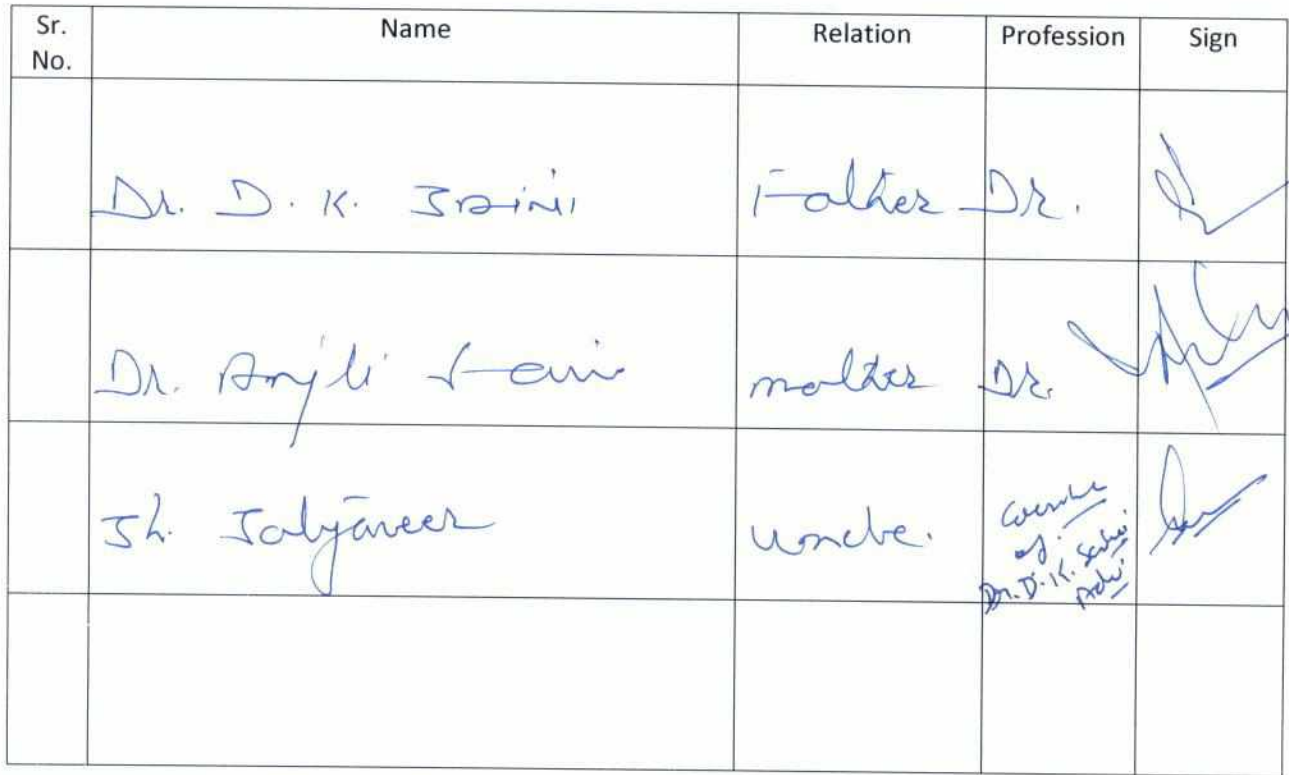 Sr. No. Name Relation Profession Sign
Dr. D. K. Saini Father Dr.
Dr. Anjli Saini mother Dr.
Sh. Satyaveer Uncle.
of.
Dr. D. K. Saini